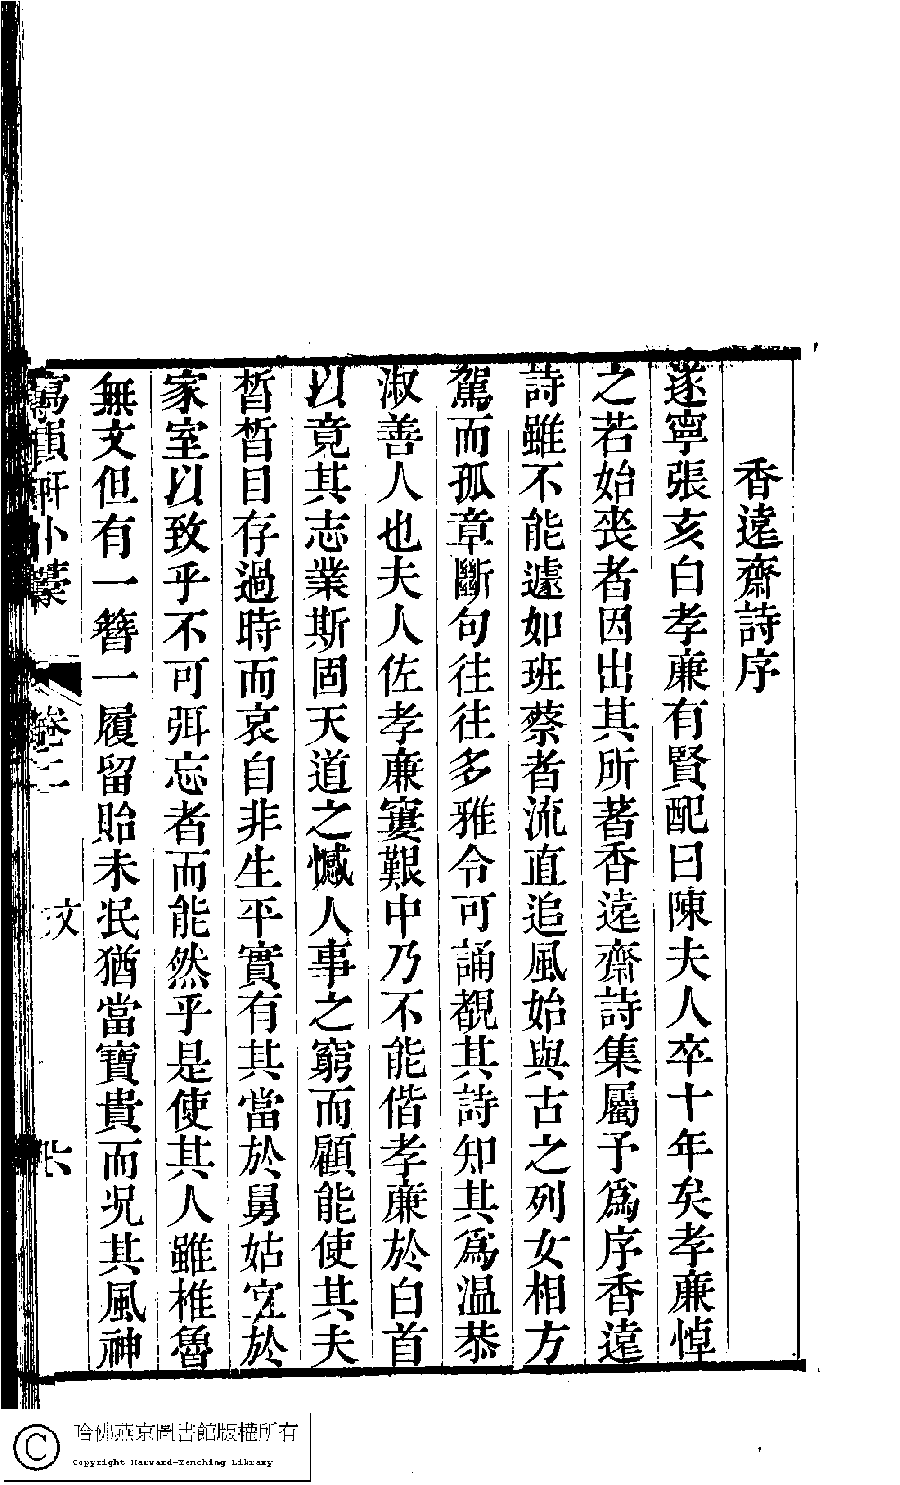 香遠齋詩序
遂寧張亥白孝亷有賢配曰陳夫人卒十年矣孝亷悼
之若始喪者因出其所著香遠齋詩集屬予爲序香遠
詩雖不能遽如班蔡者流直追風始與古之列女相方
駕而孤章斷句往往多雅令可誦覩其詩知其爲温恭
淑善人也夫人佐孝亷窶艱中乃不能偕孝亷於白首
以竟其志業斯固天道之憾人事之窮而顧能使其夫
晢晢目存過時而哀自非生平實有其當於舅姑宐於
家室以致乎不可弭忘者而能然乎是使其人雖椎魯
無文但有一簪一履留貽未泯猶當寶貴而况其風神
寓賞軒小藁
卷二
文
共
哈佛燕京圖書館版權所有
Copyright Harvard-Yenching Library